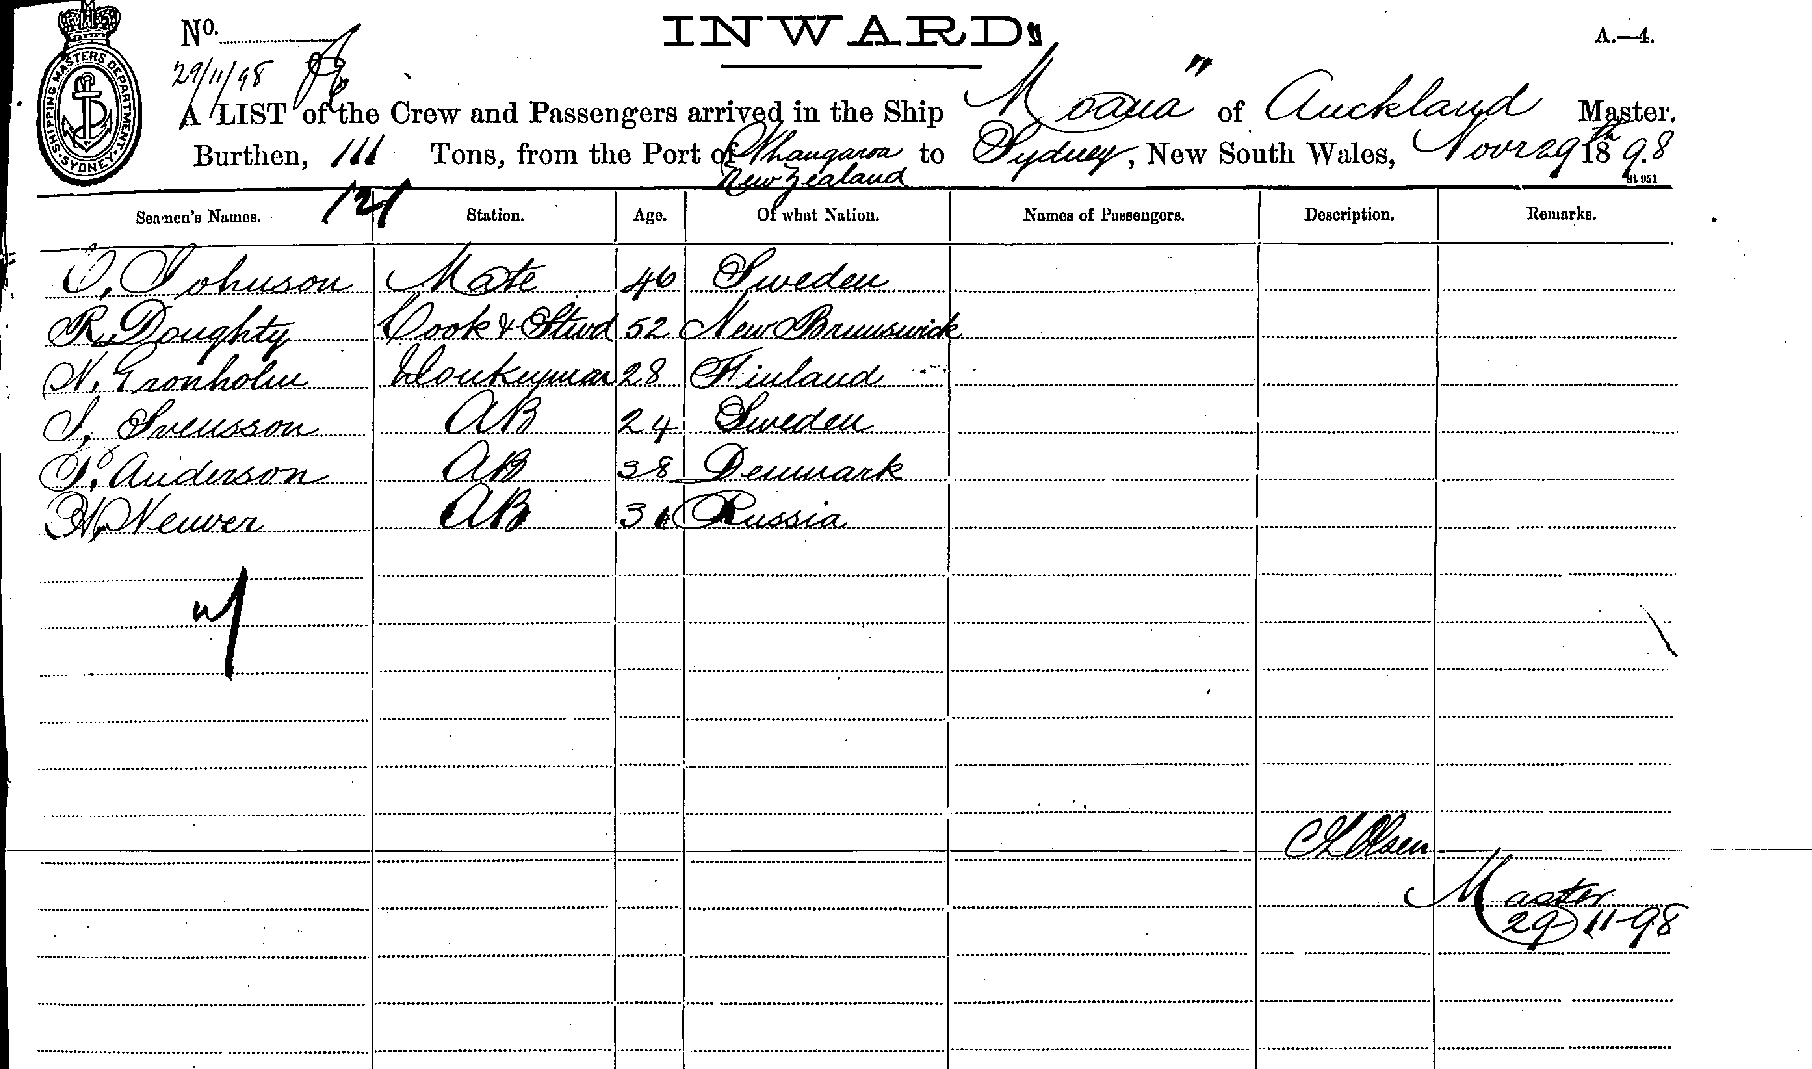 No.
INWARD.
A.—4.
29/11/98
A LIST of the Crew and Passengers arrived in the Ship "Moana" of Auckland Master.
Burthen, 111 Tons, from the Port of Whangaroa New Zealand to Sydney, New South Wales, Novr 29th 1898
St 951
SHIPPING MASTERS DEPARTMENT. SYDNEY.
121
Seamen's Names. Station. Age. Of what Nation. Names of Passengers. Description. Remarks.
C. Johnson Mate 46 Sweden
R. Doughty Cook & Stwd 52 New Brunswick
N. Gronholm Donkeyman 28 Finland
J. Svensson AB 24 Sweden
P. Anderson AB 38 Denmark
H. Neuver AB Russia
Olsen
Master
29-11-98